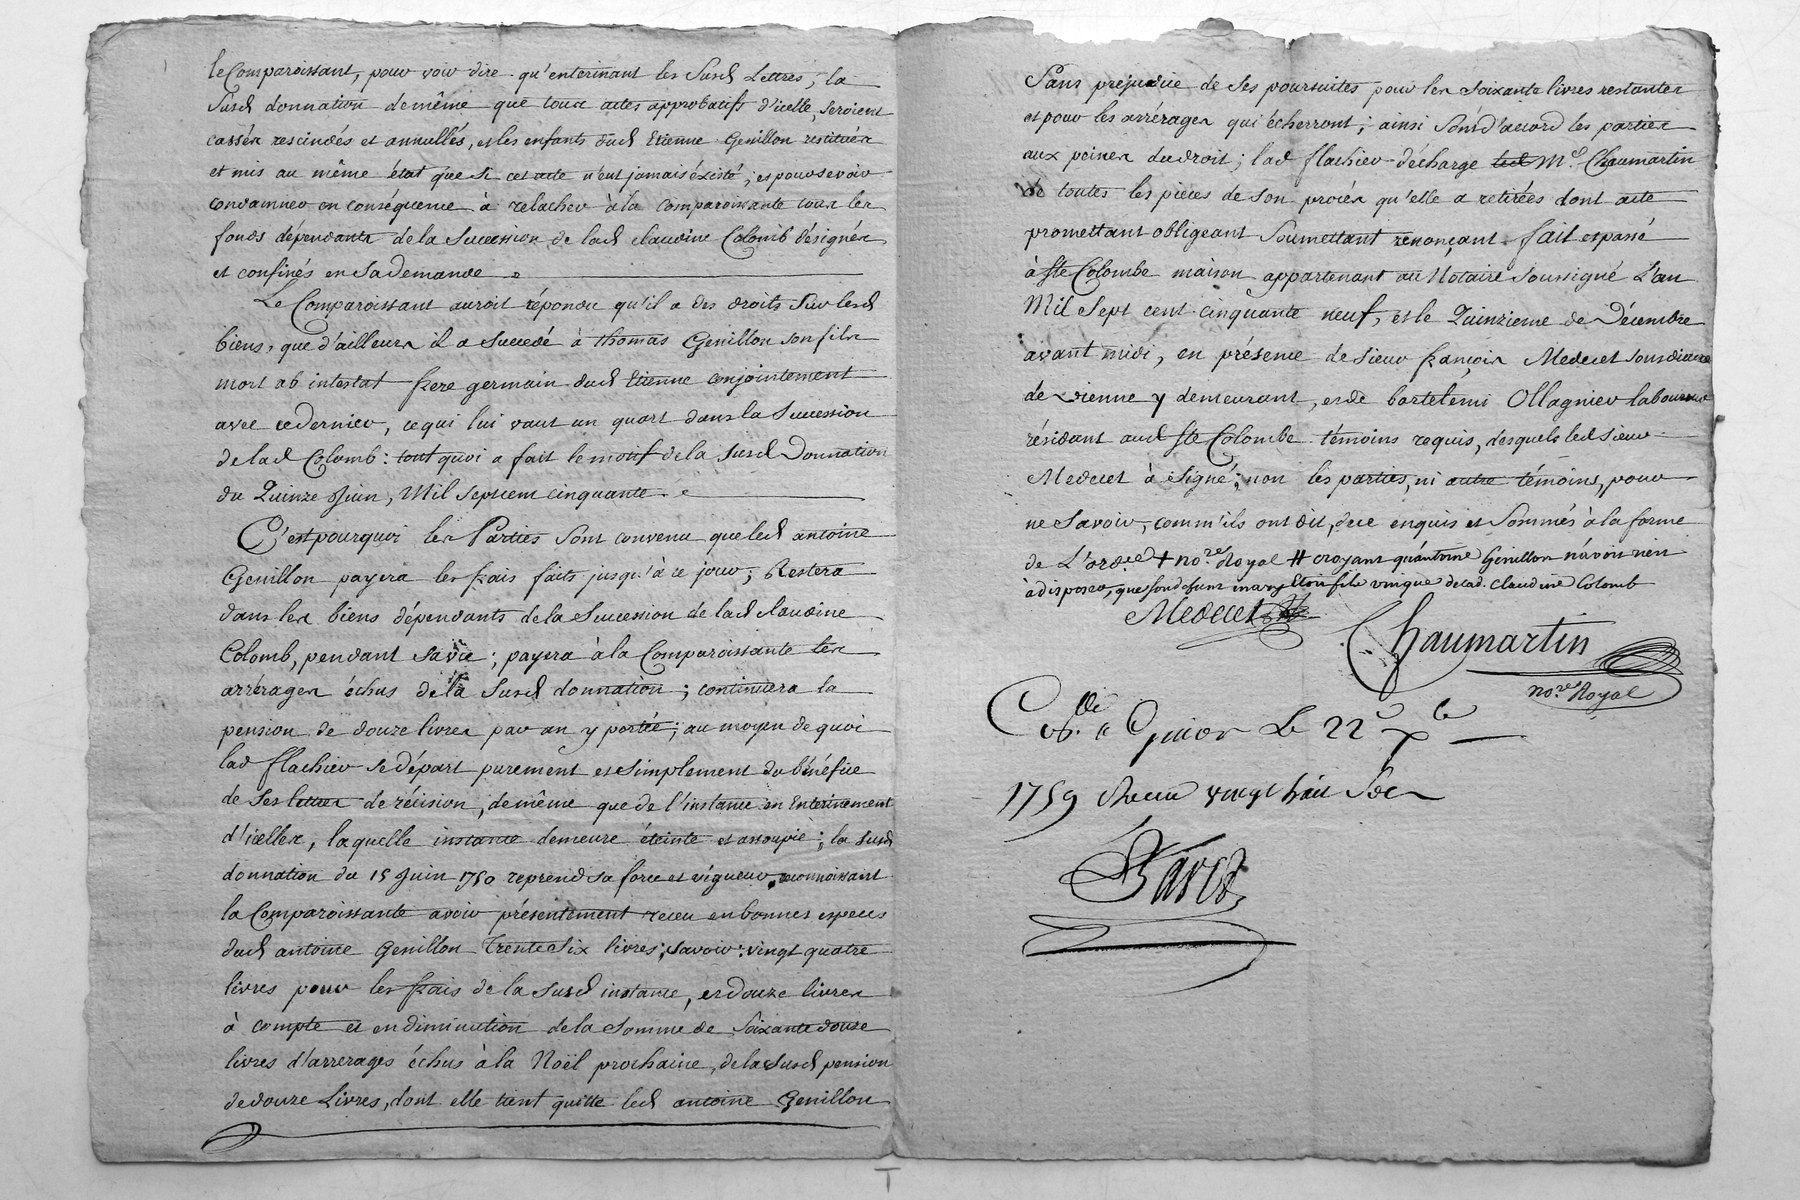 le Comparoissant, pour voir dire qu'enterinant les Susd. Lettres, la
Susd. donnation de même que tous actes approbatifs d'icelle, seroient
cassés rescindés et annullés, et les enfants dud. Etienne Genillon restitués
et mis au même état que si cet acte n'eut jamais éxisté; et pour se voir
condamner en conséquence à relacher à la Comparoissante tous les
fonds dépendants de la Succession de lad. Claudine Colomb désignés
et confinés en sa demande.
Le Comparoissant auroit répondu qu'il a des droits sur lesd.
biens, que d'ailleurs il a succédé à thomas Genillon son fils
mort ab intestat frere germain dud. Etienne conjointement
avec ce dernier, ce qui lui vaut un quart dans la Succession
de lad. Colomb: tout quoi a fait le motif de la susd. Donnation
du Quinze Juin, Mil sept cent cinquante.
C'est pourquoi les Parties sont convenu que led. antoine
Genillon payera les frais faits jusqu'à ce jour; Restera
dans les biens dépendants de la Succession de lad. Claudine
Colomb, pendant sa vie; payera à la Comparoissante les
arrérages échus de la Susd. donnation; continuera la
pension de douze livres par an y portée; au moyen de quoi
lad. flachier se départ purement et simplement du bénéfice
de ses lettres de récision, de même que de l'instance en Enterinement
d'icelles, laquelle instance demeure éteinte et assoupie; la susd.
donnation du 15 Juin 1750 reprend sa force et vigueur, reconnoissant
la Comparoissante avoir présentement receu en bonnes especes
dud. antoine Genillon Trente six livres; savoir: vingt quatre
livres pour les frais de la susd. instance, et douze livres
à compte et en diminution de la somme de Soixante douze
livres d'arrerages échus à la Noël prochaine, de la susd. pension
de douze Livres, dont elle tient quitte led. antoine Genillon
Sans prejudice de ses poursuites pour les soixante livres restantes
et pour les arrérages qui écherront; ainsi sont d'accord les parties
aux peines du droit; lad. flachier décharge led. Me. Chaumartin
de toutes les pièces de son procès qu'elle a retirées dont acte
promettant obligeant Soumettant renonçant. fait et passé
à Ste Colombe maison appartenant au Notaire Soussigné L'an
Mil Sept cent cinquante neuf, et le Quinzieme de Décembre
avant midi, en présence de Sieur françois Medecet
de Vienne y demeurant, et de bartelemi Ollagnier laboureur
résidant aud. Ste Colombe témoins requis, desquels led. sieur
Medecet à signé; non les parties, ni autre témoins, pour
ne savoir, comm'ils ont dit, de ce enquis et sommés à la forme
de L'ordce + nore. Royal # croyant qu'antoine Genillon n'avoit rien
à disposer, de lad. Claudine Colomb
Medecet
Chaumartin
nore. Royal
Le 22
1759 Receu vingt huit sols